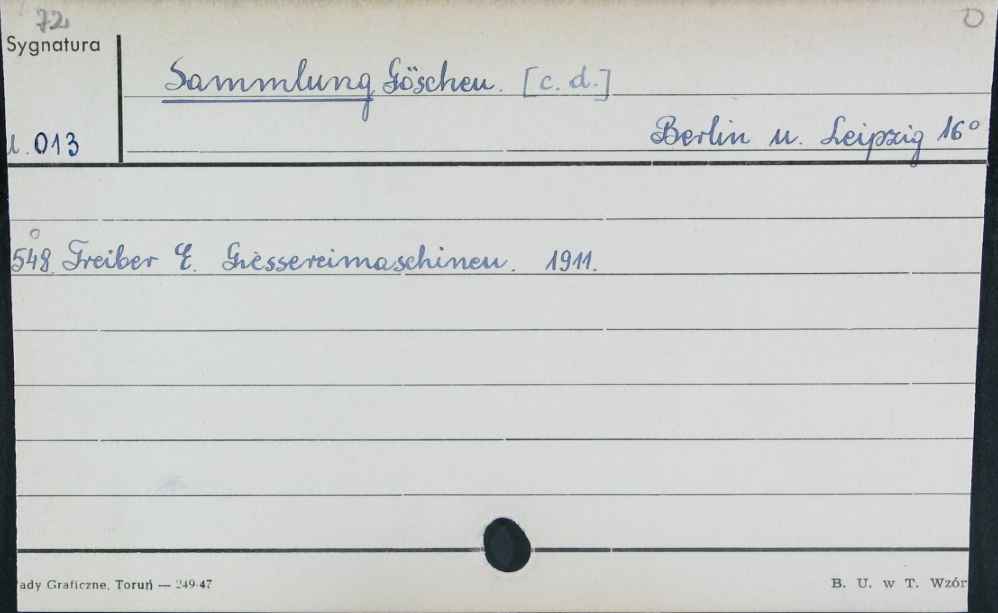 72
Sygnatura
Sammlung Göschen. [c. d.]
013
Berlin u. Leipzig 16°
548. Treiber E. Giessereimaschinen. 1911.
ady Graficzne, Toruń — 249-47
B. U. w T. Wzór